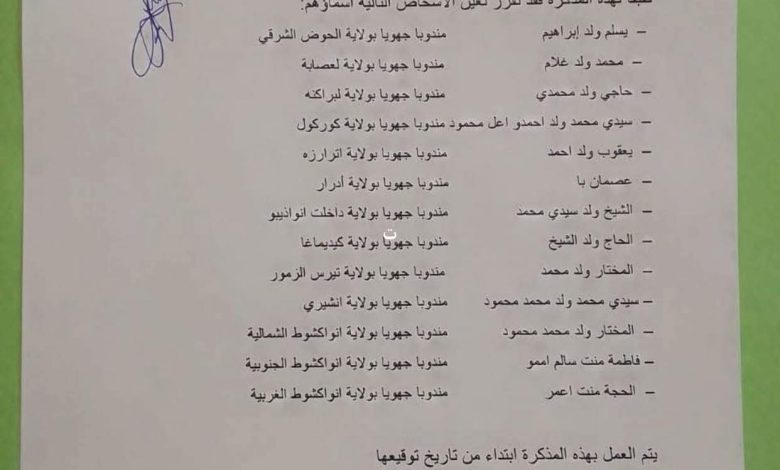 طبقا لهذه المذكرة فقد تقرر تعيين الأشخاص التالية أسماؤهم:
– يسلم ولد إبراهيم مندوبا جهويا بولاية الحوض الشرقي
– محمد ولد غلام مندوبا جهويا بولاية لعصابة
– حاجي ولد محمدي مندوبا جهويا بولاية لبراكنه
– سيدي محمد ولد احمدو اعل محمود مندوبا جهويا بولاية كوركول
– يعقوب ولد احمد مندوبا جهويا بولاية اترارزه
– عصمان با مندوبا جهويا بولاية أدرار
– الشيخ ولد سيدي محمد مندوبا جهويا بولاية داخلت انواذيبو
– الحاج ولد الشيخ مندوبا جهويا بولاية كيديماغا
– المختار ولد محمد مندوبا جهويا بولاية تيرس الزمور
– سيدي محمد ولد محمد محمود مندوبا جهويا بولاية انشيري
– المختار ولد محمد محمود مندوبا جهويا بولاية انواكشوط الشمالية
– فاطمة منت سالم اممو مندوبا جهويا بولاية انواكشوط الجنوبية
– الحجة منت اعمر مندوبا جهويا بولاية انواكشوط الغربية
يتم العمل بهذه المذكرة ابتداء من تاريخ توقيعها
ت